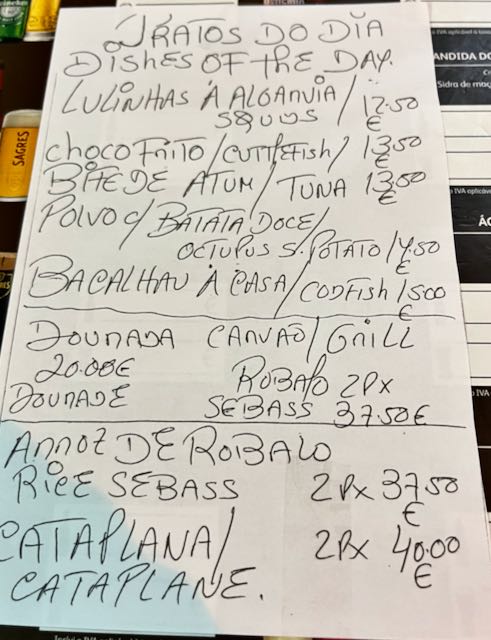 PRATOS DO DIA
DISHES OF THE DAY.
LULINHAS À ALGARVIA /
SQUIDS 12.50
€
CHOCO FRITO / CUTTLEFISH / 13.50
€
BIFE DE ATUM / TUNA 13.50
€
POLVO C/ BATATA DOCE /
OCTUPUS S. POTATO / 14.50
€
BACALHAU À CASA / CODFISH / 1500
€
DOURADA CARVÃO / GRILL
20.00€ ROBALO 2PX
DOURADE SEBASS 37.50€
ARROZ DE ROBALO
RICE SEBASS 2PX 37.50
€
CATAPLANA / 2PX 40.00
€
CATAPLANE.
SAGRES
ANDIDA DO
Sidra de maç